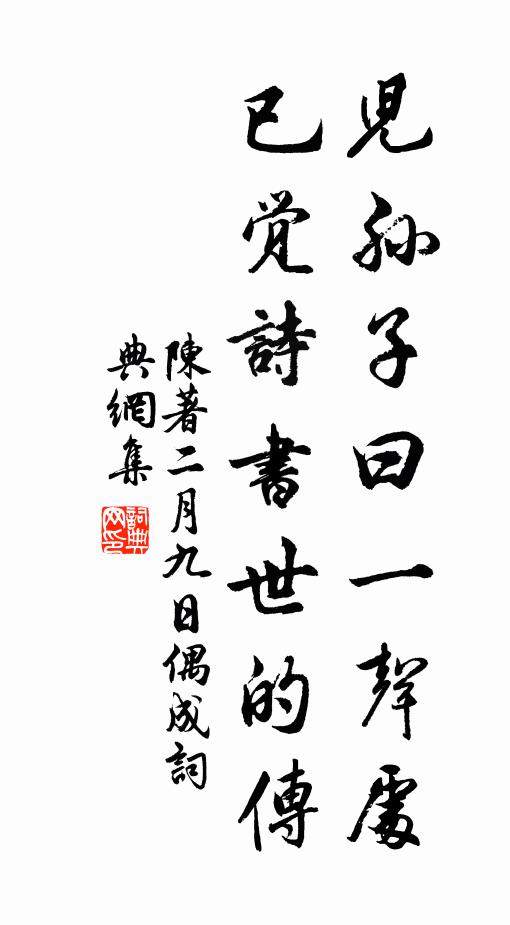 児孫子曰一聲處
已覺詩書世的傳
陳著二月九日偶成詞
典網集
詞典网印